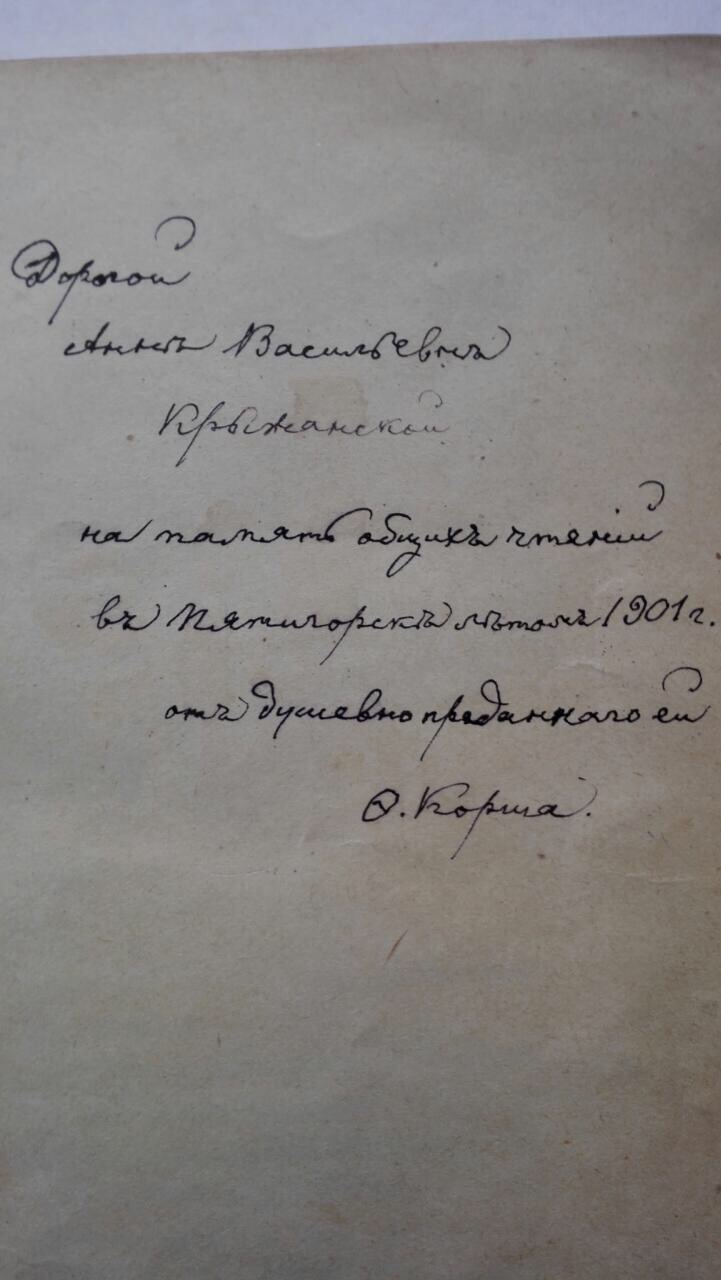 Дорогой
Аннѣ Васильевнѣ
Крыжанской
на память общихъ чтеній
въ Пятигорскѣ лѣтомъ 1901 г.
отъ душевно преданнаго ей
Ѳ. Корша.